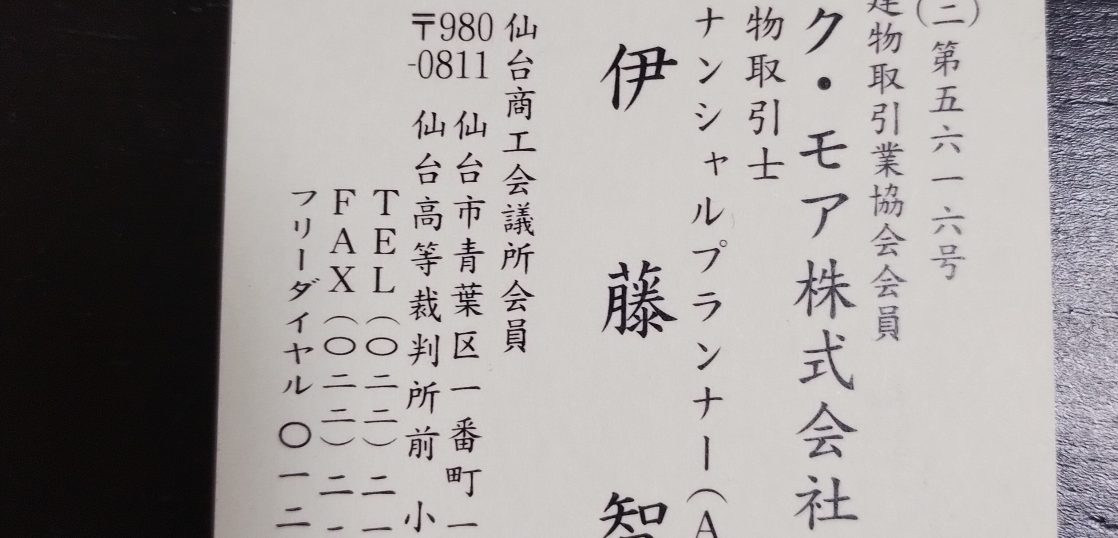 (二)第五六一六号
建物取引業協会会員
ク・モア株式会社
物取引士
ナンシャルプランナー(A
伊藤智
仙台商工会議所会員
〒980-0811
仙台市青葉区一番町一
仙台高等裁判所前 小
TEL(〇二二)二
FAX(〇二二)二
フリーダイヤル〇一二